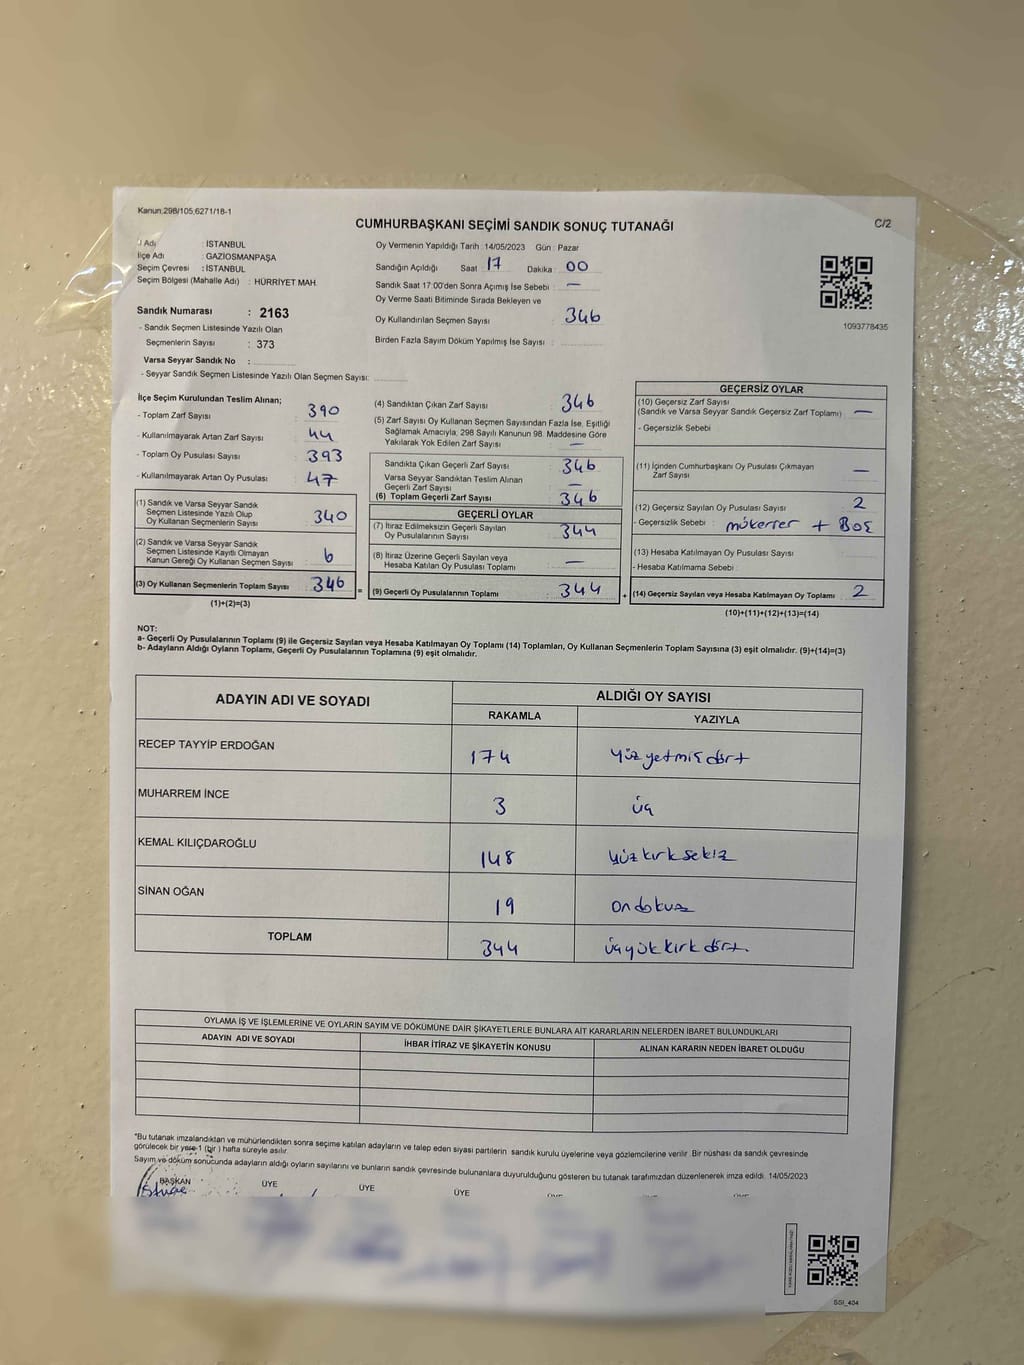 Kanun:298/105,6271/18-1
C/2
CUMHURBAŞKANI SEÇİMİ SANDIK SONUÇ TUTANAĞI
İl Adı : İSTANBUL
İlçe Adı : GAZİOSMANPAŞA
Seçim Çevresi : İSTANBUL
Seçim Bölgesi (Mahalle Adı) : HÜRRİYET MAH.
Sandık Numarası : 2163
- Sandık Seçmen Listesinde Yazılı Olan
Seçmenlerin Sayısı : 373
Varsa Seyyar Sandık No :
- Seyyar Sandık Seçmen Listesinde Yazılı Olan Seçmen Sayısı:
Oy Vermenin Yapıldığı Tarih :14/05/2023 Gün : Pazar
Sandığın Açıldığı Saat : 17 Dakika : 00
Sandık Saat 17:00'den Sonra Açımış İse Sebebi : —
Oy Verme Saati Bitiminde Sırada Bekleyen ve
Oy Kullandırılan Seçmen Sayısı : 346
Birden Fazla Sayım Döküm Yapılmış İse Sayısı :
1093778435
İlçe Seçim Kurulundan Teslim Alınan;
- Toplam Zarf Sayısı : 390
- Kullanılmayarak Artan Zarf Sayısı : 44
- Toplam Oy Pusulası Sayısı : 393
- Kullanılmayarak Artan Oy Pusulası : 47
(1) Sandık ve Varsa Seyyar Sandık
Seçmen Listesinde Yazılı Olup
Oy Kullanan Seçmenlerin Sayısı : 340
(2) Sandık ve Varsa Seyyar Sandık
Seçmen Listesinde Kayıtlı Olmayan
Kanun Gereği Oy Kullanan Seçmen Sayısı : 6
(3) Oy Kullanan Seçmenlerin Toplam Sayısı : 346
(1)+(2)=(3)
(4) Sandıktan Çıkan Zarf Sayısı : 346
(5) Zarf Sayısı Oy Kullanan Seçmen Sayısından Fazla İse, Eşitliği
Sağlamak Amacıyla, 298 Sayılı Kanunun 98. Maddesine Göre
Yakılarak Yok Edilen Zarf Sayısı : —
Sandıkta Çıkan Geçerli Zarf Sayısı : 346
Varsa Seyyar Sandıktan Teslim Alınan
Geçerli Zarf Sayısı : —
(6) Toplam Geçerli Zarf Sayısı : 346
GEÇERLİ OYLAR
(7) İtiraz Edilmeksizin Geçerli Sayılan
Oy Pusulalarının Sayısı : 344
(8) İtiraz Üzerine Geçerli Sayılan veya
Hesaba Katılan Oy Pusulası Toplamı : —
(9) Geçerli Oy Pusulalarının Toplamı : 344
GEÇERSİZ OYLAR
(10) Geçersiz Zarf Sayısı
(Sandık ve Varsa Seyyar Sandık Geçersiz Zarf Toplamı) : —
- Geçersizlik Sebebi :
(11) İçinden Cumhurbaşkanı Oy Pusulası Çıkmayan
Zarf Sayısı : —
(12) Geçersiz Sayılan Oy Pusulası Sayısı : 2
- Geçersizlik Sebebi : mükerrer + Boş
(13) Hesaba Katılmayan Oy Pusulası Sayısı :
- Hesaba Katılmama Sebebi :
(14) Geçersiz Sayılan veya Hesaba Katılmayan Oy Toplamı : 2
(10)+(11)+(12)+(13)=(14)
NOT:
a- Geçerli Oy Pusulalarının Toplamı (9) ile Geçersiz Sayılan veya Hesaba Katılmayan Oy Toplamı (14) Toplamları, Oy Kullanan Seçmenlerin Toplam Sayısına (3) eşit olmalıdır. (9)+(14)=(3)
b- Adayların Aldığı Oyların Toplamı, Geçerli Oy Pusulalarının Toplamına (9) eşit olmalıdır.
ADAYIN ADI VE SOYADI
ALDIĞI OY SAYISI
RAKAMLA YAZIYLA
RECEP TAYYİP ERDOĞAN 174 yüzyetmişdört
MUHARREM İNCE 3 üç
KEMAL KILIÇDAROĞLU 148 yüzkırksekiz
SİNAN OĞAN 19 ondokuz
TOPLAM 344 üçyükkırkdört
OYLAMA İŞ VE İŞLEMLERİNE VE OYLARIN SAYIM VE DÖKÜMÜNE DAİR ŞİKAYETLERLE BUNLARA AİT KARARLARIN NELERDEN İBARET BULUNDUKLARI
ADAYIN ADI VE SOYADI İHBAR İTİRAZ VE ŞİKAYETİN KONUSU ALINAN KARARIN NEDEN İBARET OLDUĞU
*Bu tutanak imzalandıktan ve mühürlendikten sonra seçime katılan adayların ve talep eden siyasi partilerin sandık kurulu üyelerine veya gözlemcilerine verilir. Bir nüshası da sandık çevresinde
görülecek bir yere 1 (bir) hafta süreyle asılır.
Sayım ve döküm sonucunda adayların aldığı oyların sayılarını ve bunların sandık çevresinde bulunanlara duyurulduğunu gösteren bu tutanak tarafımızdan düzenlenerek imza edildi. 14/05/2023
BAŞKAN ÜYE ÜYE ÜYE
SSI_404